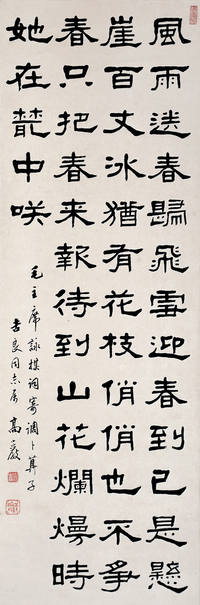 風雨送春歸飛雪迎春到已是懸
崖百丈冰猶有花枝俏俏也不爭
春只把春来報待到山花爛熳時
她在叢中咲
毛主席詠楳词寄调卜算子
良同志属 高